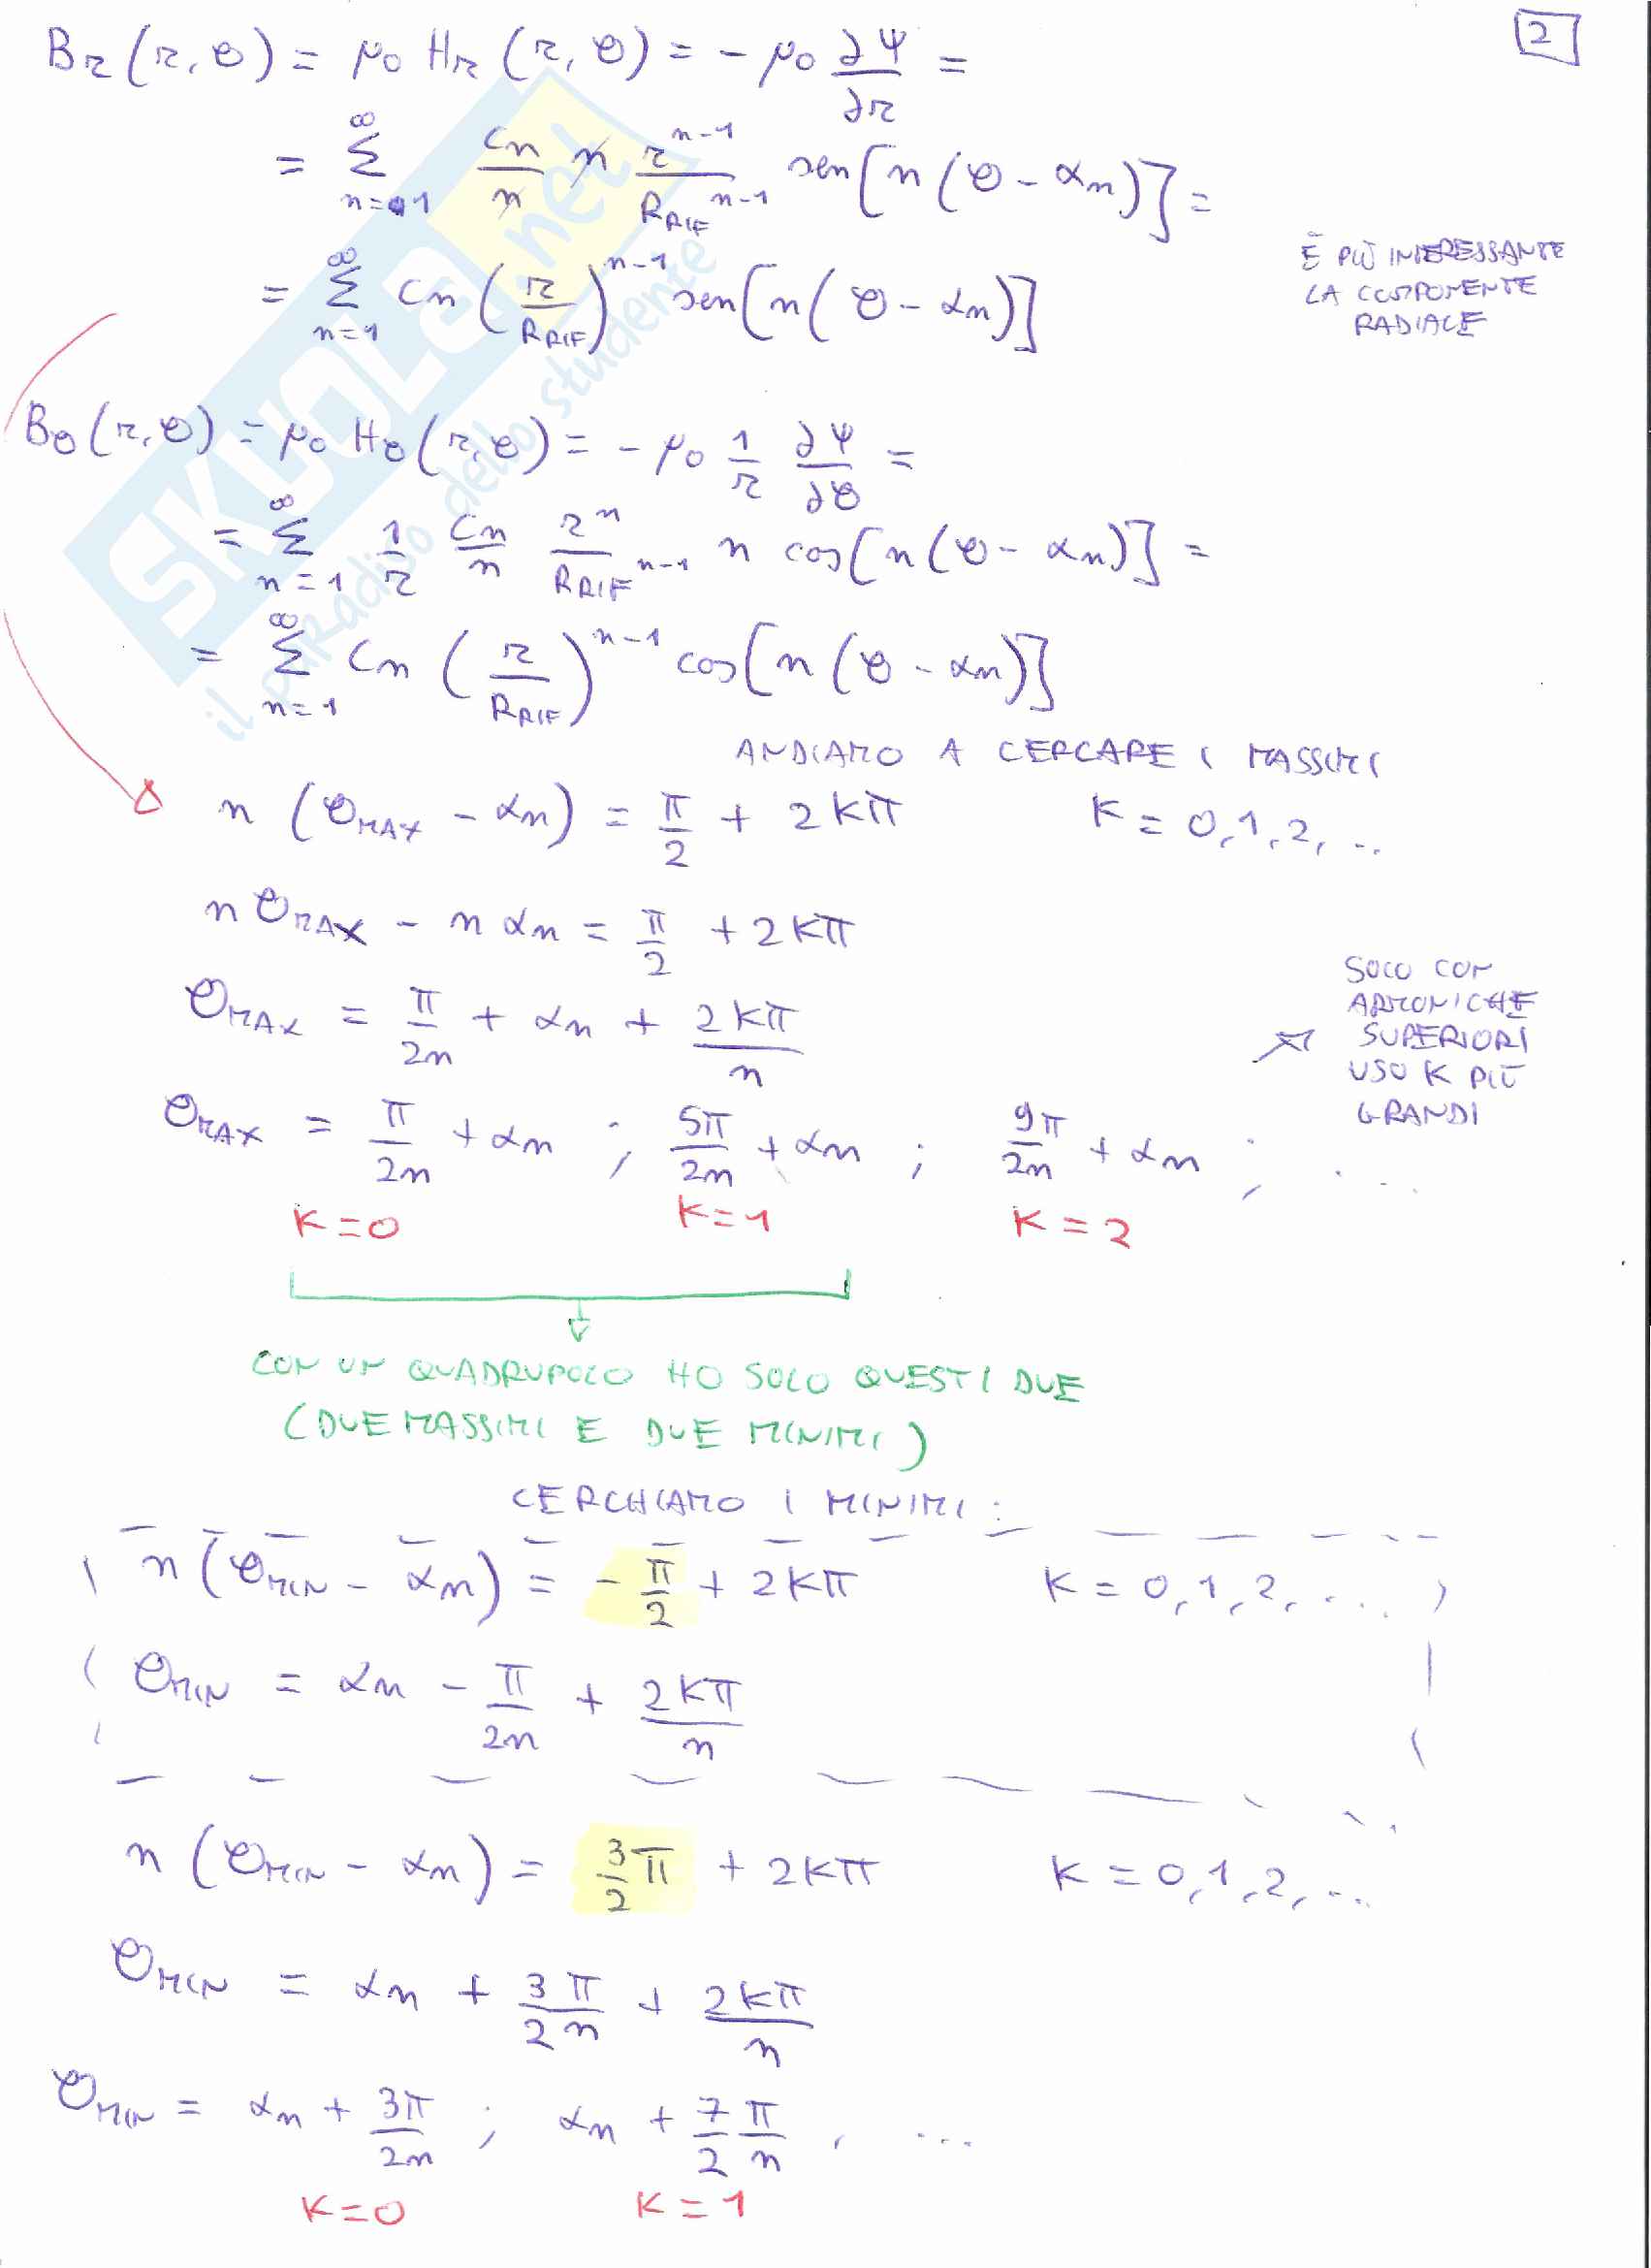 2
B_r(r,θ) = μ0 H_r(r,θ) = -μ0 ∂Ψ/∂r =
= Σ_{n=1}^{∞} C_n/n n r^{n-1}/R_RIF^{n-1} sen[n(θ-α_n)] =
= Σ_{n=1}^{∞} C_n (r/R_RIF)^{n-1} sen[n(θ-α_n)]
È PIÙ INTERESSANTE
LA COMPONENTE
RADIALE
B_θ(r,θ) = μ0 H_θ(r,θ) = -μ0 1/r ∂Ψ/∂θ =
= Σ_{n=1}^{∞} 1/r C_n/n r^n/R_RIF^{n-1} n cos[n(θ-α_n)] =
= Σ_{n=1}^{∞} C_n (r/R_RIF)^{n-1} cos[n(θ-α_n)]
ANDIAMO A CERCARE I MASSIMI
n(θ_MAX - α_n) = π/2 + 2Kπ K = 0,1,2,..
nθ_MAX - nα_n = π/2 + 2Kπ
θ_MAX = π/2n + α_n + 2Kπ/n
SOLO CON
ARMONICHE
SUPERIORI
USO K PIÙ
GRANDI
θ_MAX = π/2n + α_n ; 5π/2n + α_n ; 9π/2n + α_n ; ...
K=0 K=1 K=2
CON UN QUADRUPOLO HO SOLO QUESTI DUE
(DUE MASSIMI E DUE MINIMI)
CERCHIAMO I MINIMI:
n(θ_MIN - α_n) = -π/2 + 2Kπ K = 0,1,2,...
θ_MIN = α_n - π/2n + 2Kπ/n
n(θ_MIN - α_n) = 3/2 π + 2Kπ K = 0,1,2,...
θ_MIN = α_n + 3π/2n + 2Kπ/n
θ_MIN = α_n + 3π/2n ; α_n + 7/2 π/n , ...
K=0 K=1
SKUOLA.net
il paradiso dello studente